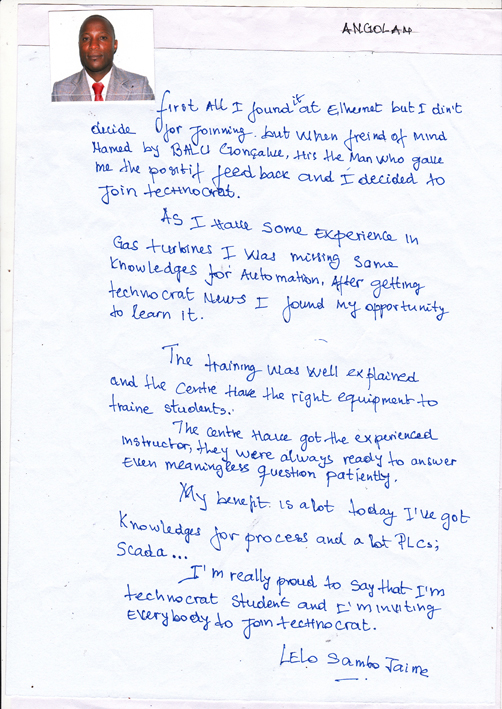 ANGOLAN
first All I found it at Ethernet but I din't
decide for Joinning. but when freind of Mind
Named by BALU Gonçalve, His the Man who gave
me the positif feed back and I decided to
Join technocrat.
As I Have some Experience in
Gas turbines I was missing some
knowledges for Automation, After getting
technocrat News I found my opportunity
to learn it.
The training was well explained
and the centre Have the right equipment to
traine students.
The centre Have got the experienced
instructor, they were always ready to answer
Even meaningless question patiently.
My benefit is a lot today I've got
Knowledges for process and a lot PLCs;
Scada...
I'm really proud to say that I'm
technocrat student and I'm inviting
Everybody to Join technocrat.
LELO Sambo Jaime